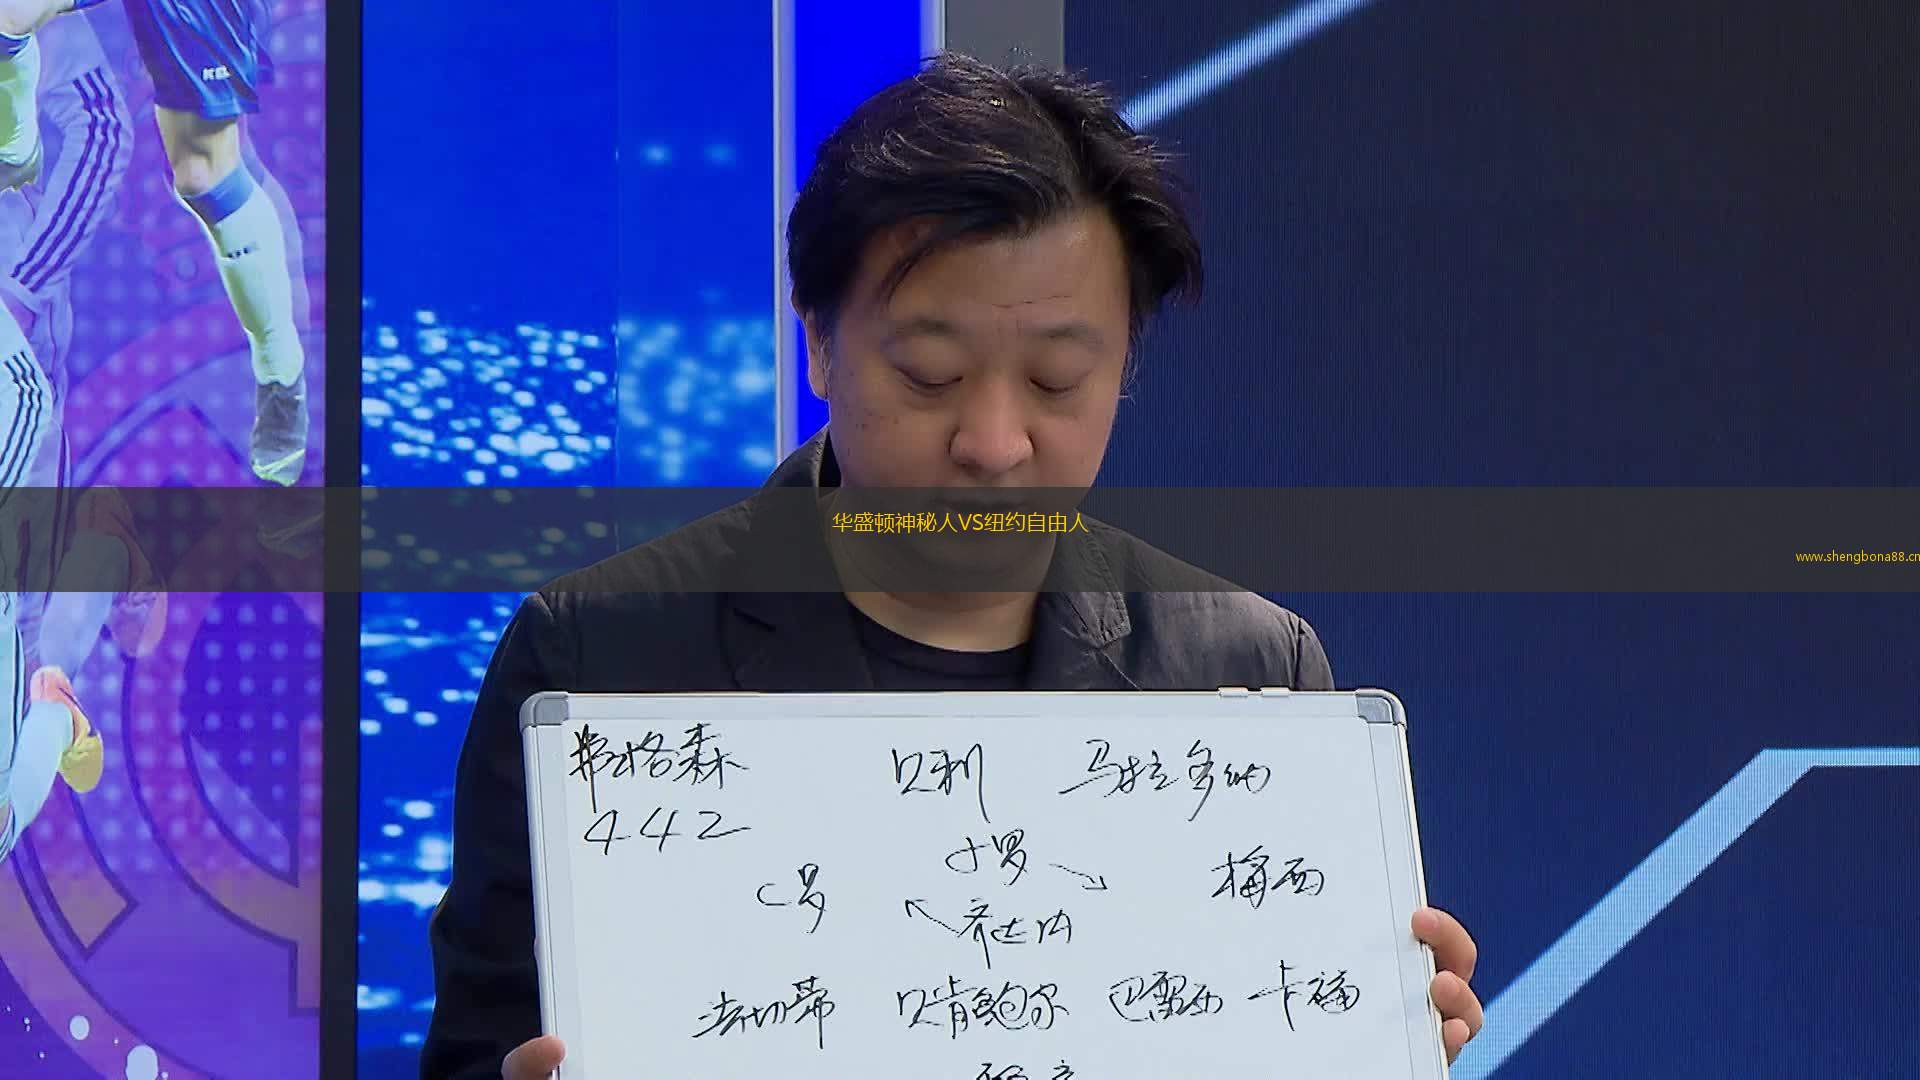 华盛顿神秘人VS纽约自由人
www.shengbona88.cn
弗格森 贝利 马拉多纳
442
小罗
C罗 梅西
齐达内
法切蒂 贝肯鲍尔 巴雷西 卡福